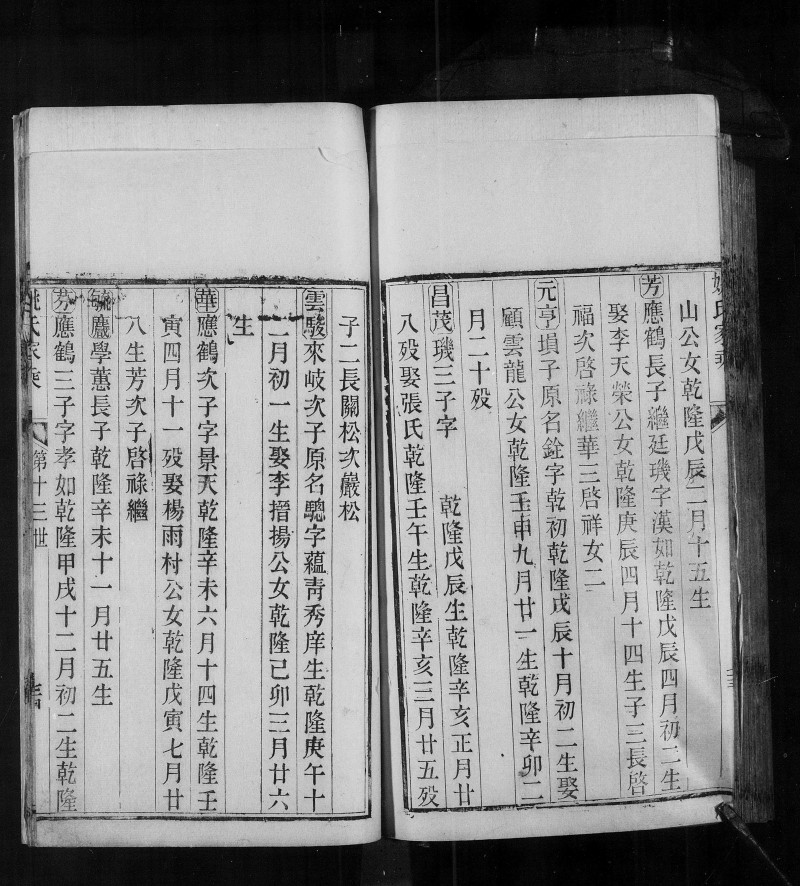 姚氏家乘
山公女乾隆戊辰二月十五生
芳應鶴長子繼廷璣字漢如乾隆戊辰四月初二生
娶李天榮公女乾隆庚辰四月十四生子三長啓
福次啓祿繼華三啓祥女二
元亨塤子原名銓字乾初乾隆戊辰十月初二生娶
顧雲龍公女乾隆壬申九月廿一生乾隆辛卯二
月二十歿
昌茂璣三子字 乾隆戊辰生乾隆辛亥正月廿
八歿娶張氏乾隆壬午生乾隆辛亥三月廿五歿
子二長關松次巖松
雲駿來岐次子原名驄字蘊靑秀庠生乾隆庚午十
一月初一生娶李搢揚公女乾隆己卯三月廿六
生
華應鶴次子字景天乾隆辛未六月十四生乾隆壬
寅四月十一歿娶楊雨村公女乾隆戊寅七月廿
八生芳次子啓祿繼
毓麘學蕙長子乾隆辛未十一月廿五生
芬應鶴三子字孝如乾隆甲戌十二月初二生乾隆
姚氏家乘 第十三世